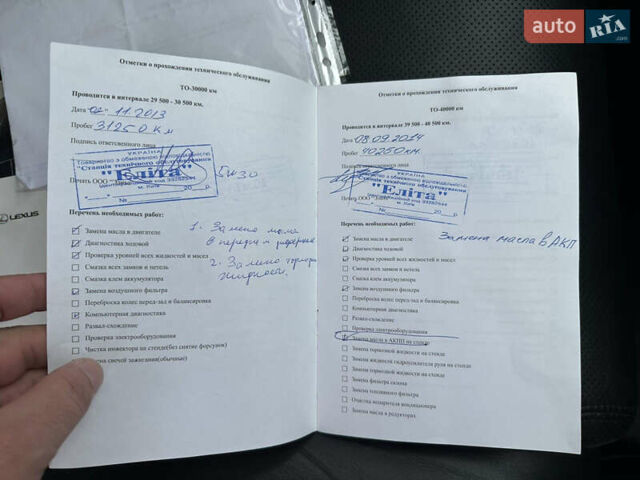 auto RIA.com
LEXUS
Отметки о прохождении технического обслуживания
ТО-30000 км
Проводится в интервале 29 500 - 30 500 км.
Дата 11.2013
Пробег 31250 км
Подпись ответственного лица
УКРАЇНА
Товариство з обмеженою відповідальністю
"Станція технічного обслуговування
"Еліта"
Ідентифікаційний код
м. Київ
№ 20 р.
Печать ООО
Перечень необходимых работ:
Замена масла в двигателе
Диагностика ходовой
Проверка уровней всех жидкостей и масел
Смазка всех замков и петель
Смазка клем аккумулятора
Замена воздушного фильтра
Переброска колес перед-зад и балансировка
Компьютерная диагностика
Развал-схождение
Проверка электрооборудования
Чистка инжектора на стенде(без снятие форсунок)
свечей зажигания(обычные)
1. Замена
в передн и
2. Замена
жидкости.
Отметки о прохождении технического обслуживания
ТО-40000 км
Проводится в интервале 39 500 - 40 500 км.
Дата 08.09.2014
Пробег 40250 км
лица
УКРАЇНА
з обмеженою відповідальністю
"Станція технічного обслуговування
"Еліта"
Ідентифікаційний код
м. Київ
№ 20 р.
Печать ООО
Перечень необходимых работ:
Замена масла в двигателе
Диагностика ходовой
Проверка уровней всех жидкостей и масел
Смазка всех замков и петель
Смазка клем аккумулятора
Замена воздушного фильтра
Переброска колес перед-зад и балансировка
Компьютерная диагностика
Развал-схождение
Проверка электрооборудования
Замена масла в АКПП на стенде
Замена тормозной жидкости на стенде
Замена жидкости гидроусилителя руля на стенде
Замена тормозной жидкости на стенде
Замена фильтра салона
Замена топливного фильтра
Очистка испарителя кондиционера
Замена масла в редукторах
Замена масла в АКП